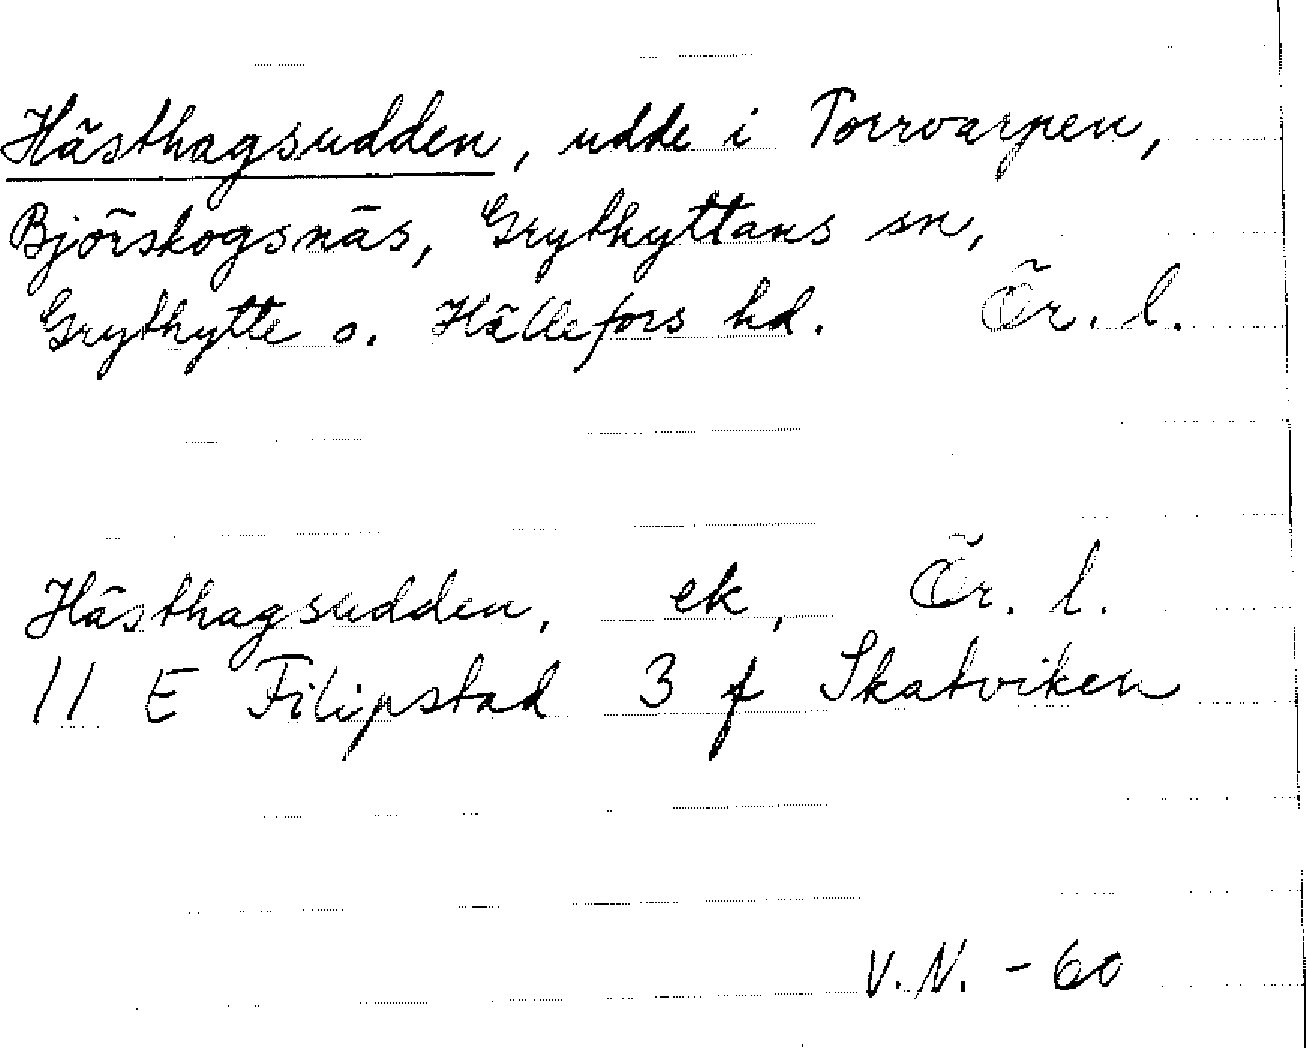 Hästhagsudden, udde i Torrvarpen,
Björskogsnäs, Grythyttans sn,
Grythytte o. Hällefors hd. Ör. l.
Hästhagsudden, ek, Ör. l.
11 E Filipstad 3 f Skatviken
V.N. - 60